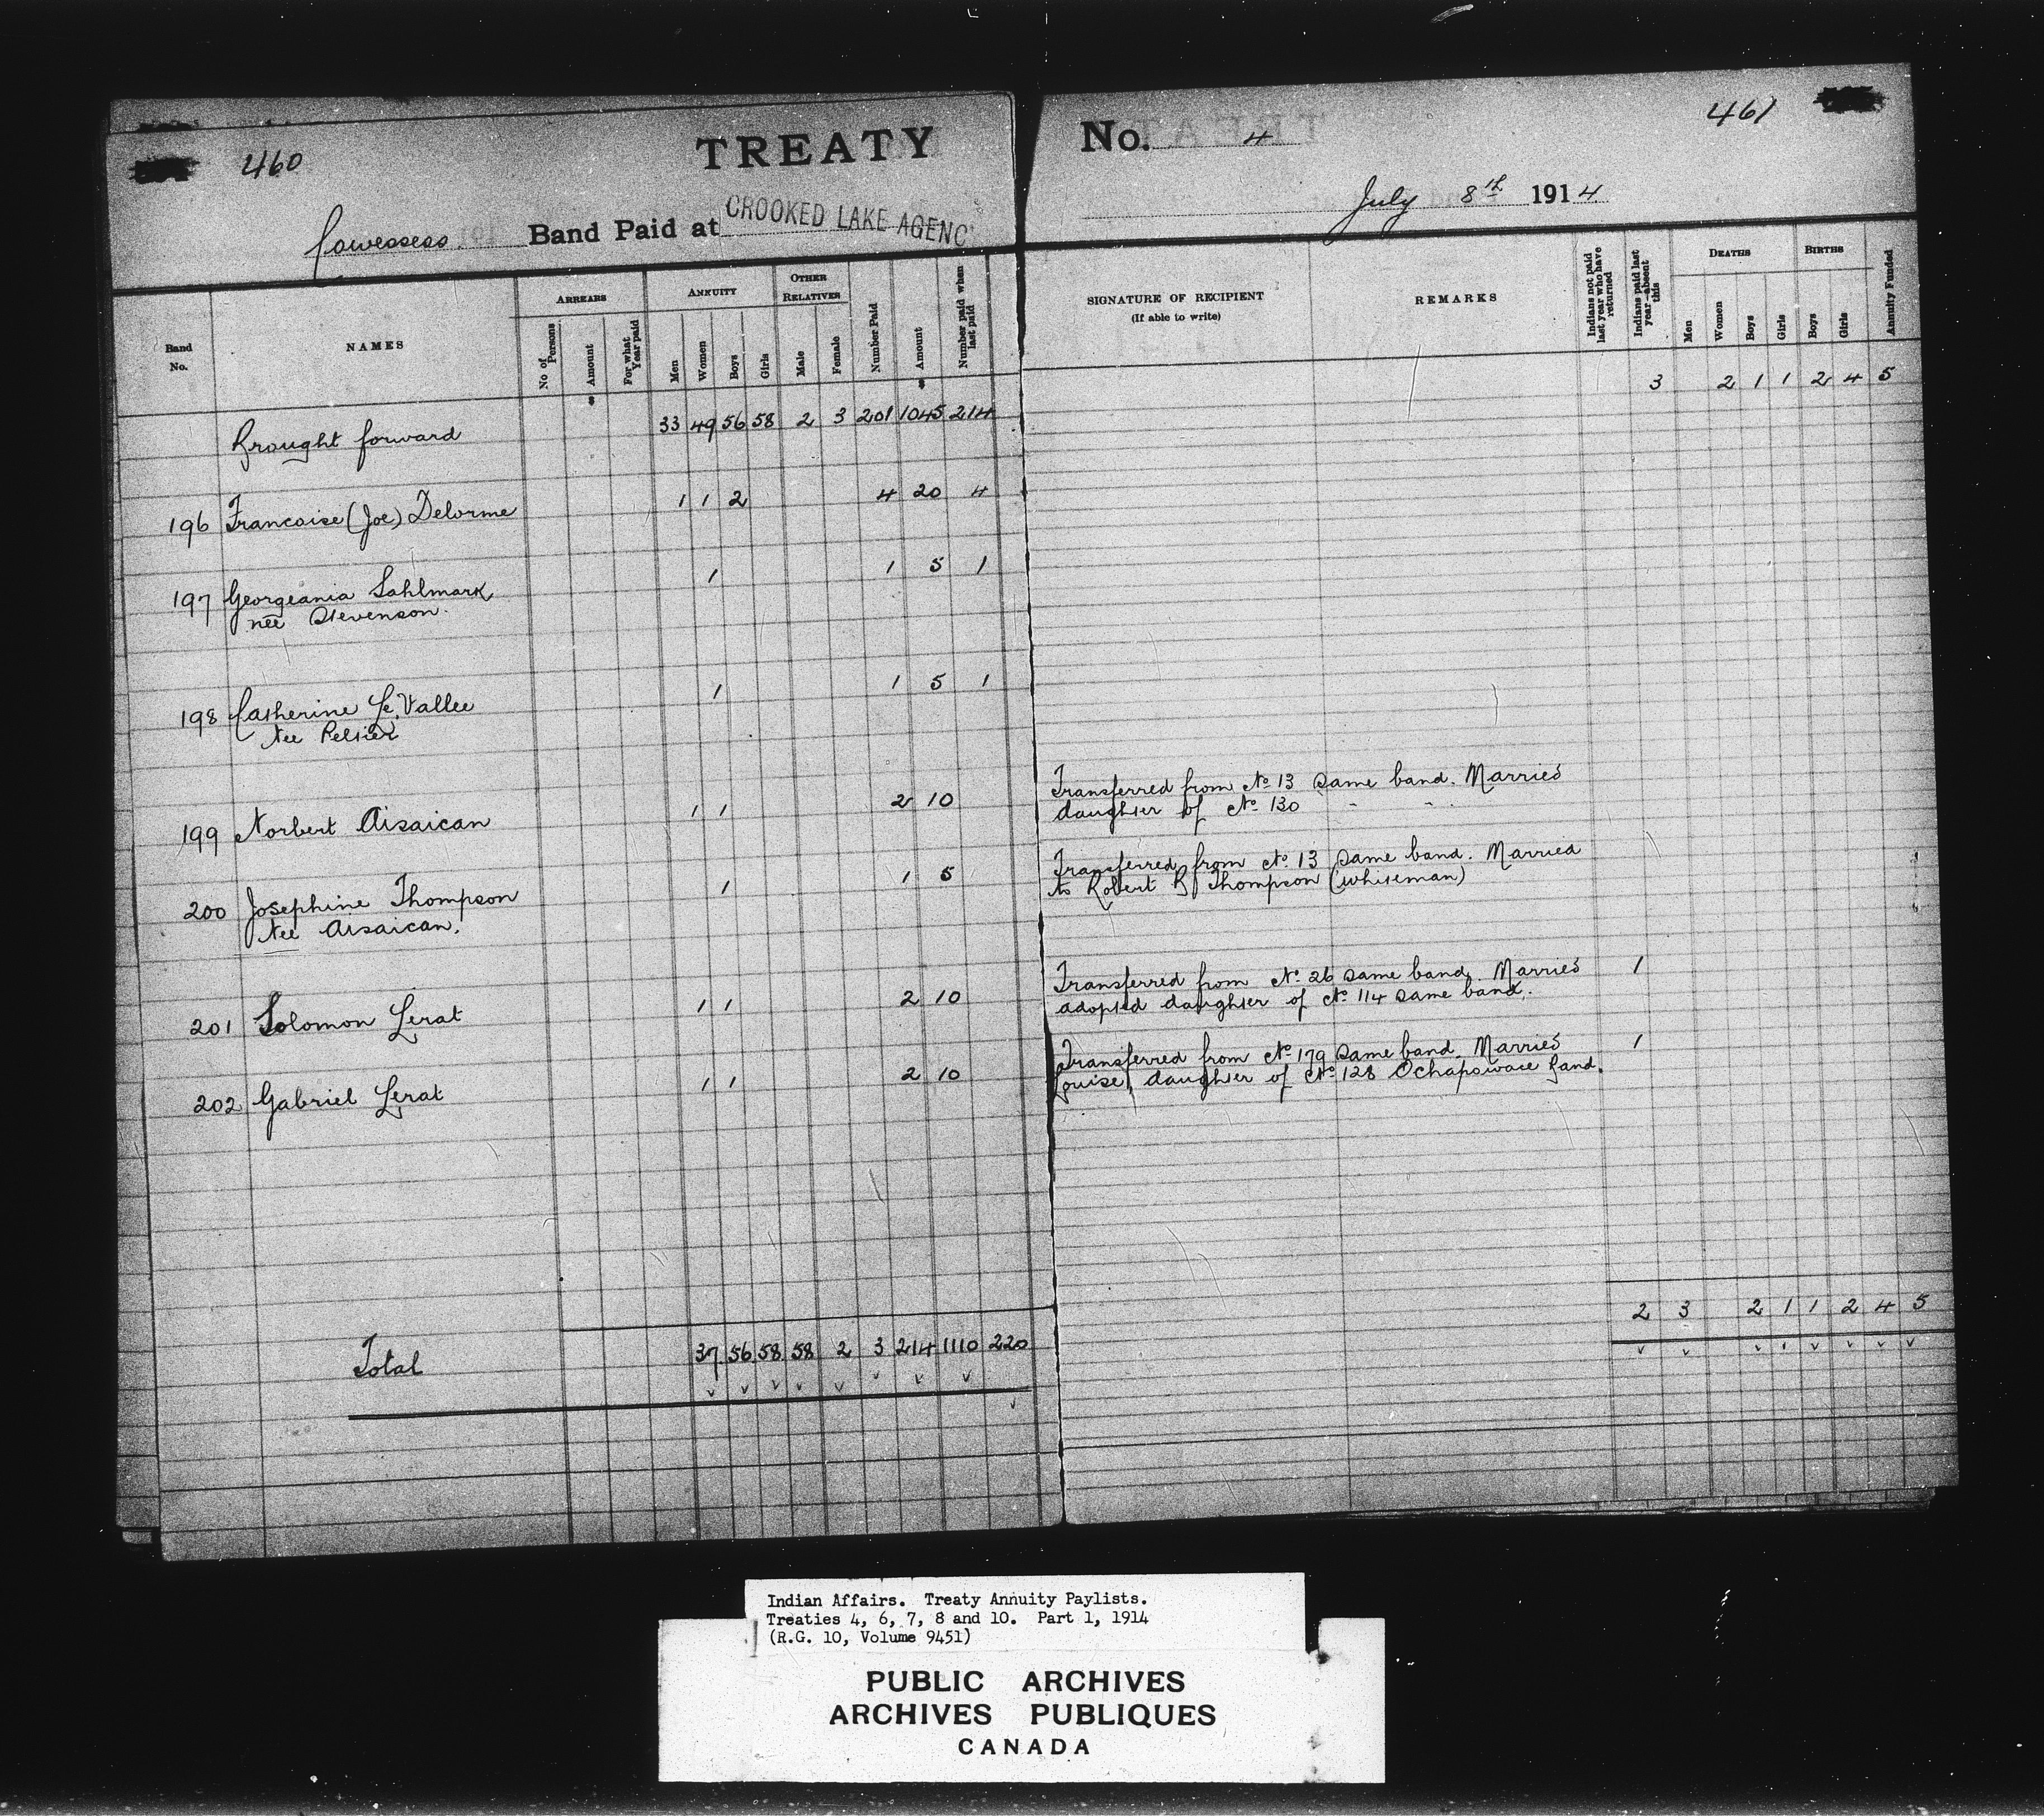 460
TREATY
No. 4
461
Cowessess Band Paid at CROOKED LAKE AGENC
July 8th 1914
Band No.
NAMES
ARREARS
No of Persons
Amount
For what Year paid
ANNUITY
Men
Women
Boys
Girls
OTHER RELATIVES
Male
Female
Number Paid
Amount
Number paid when last paid
SIGNATURE OF RECIPIENT
(If able to write)
REMARKS
Indians not paid last year who have returned
Indians paid last year—absent this
DEATHS
Men
Women
Boys
Girls
BIRTHS
Boys
Girls
Annuity Funded
$ $
Brought forward 33 49 56 58 2 3 201 1045 214 3 2 1 1 2 4 5
196 Francoise (Joe) Delorme 1 1 2 4 20 4
197 Georgeania Sahlmark 1 1 5 1
nee Stevenson.
198 Catherine Le Vallee 1 1 5 1
Nee Peltier
199 Norbert Aisaican 1 1 2 10 Transferred from No 13 same band. Married
daughter of No 130 " "
200 Josephine Thompson 1 1 5 Transferred from No 13 same band. Married
Nee Aisaican. to Robert B Thompson (whiteman)
201 Solomon Lerat 1 1 2 10 Transferred from No 26 same band. Married 1
adopted daughter of No 114 same band.
202 Gabriel Lerat 1 1 2 10 Transferred from No 179 same band. Married 1
Louise, daughter of No 128 Ochapowace Band.
Total 37 56 58 58 2 3 214 1110 220 2 3 2 1 1 2 4 5
Indian Affairs. Treaty Annuity Paylists.
Treaties 4, 6, 7, 8 and 10. Part 1, 1914
(R.G. 10, Volume 9451)
PUBLIC ARCHIVES
ARCHIVES PUBLIQUES
CANADA